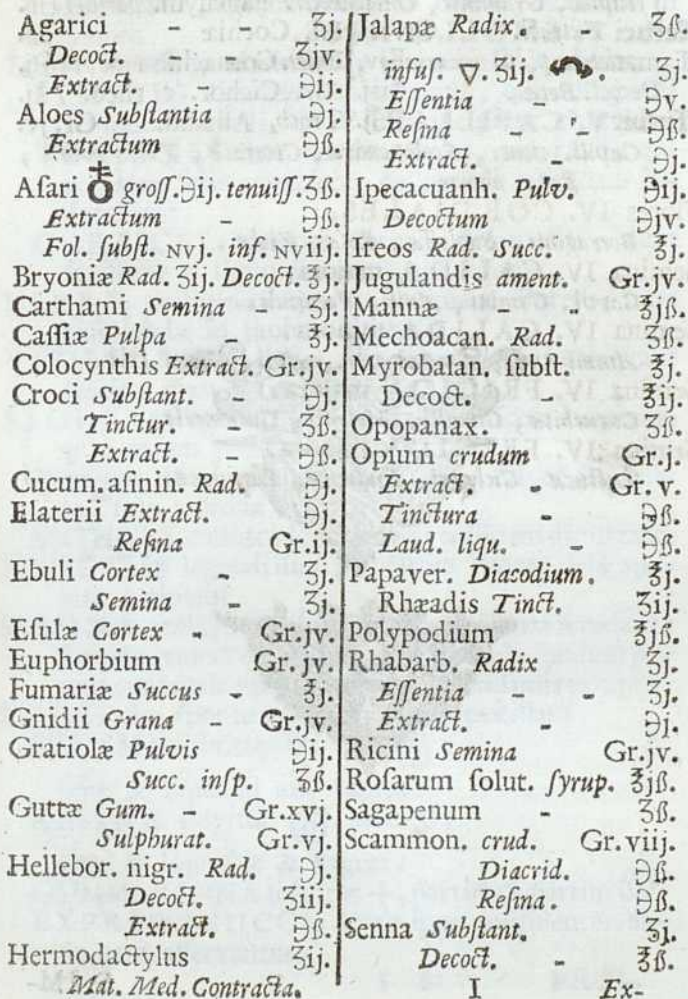 Agarici - - ʒj.
Decoct. - ʒjv.
Extract. - ℈ij.
Aloes Subſtantia ℈j.
Extractum ℈ß.
Aſari ♁ groſſ. ℈ij. tenuiſſ. ʒß.
Extractum - ℈ß.
Fol. ſubſt. Nvj. inf. Nviij.
Bryoniæ Rad. ʒij. Decoct. ℥j.
Carthami Semina - ʒj.
Caſſiæ Pulpa - ℥j.
Colocynthis Extract. Gr.jv.
Croci Subſtant. - ℈j.
Tinctur. - ʒß.
Extract. - ℈ß.
Cucum. aſinin. Rad. ℈j.
Elaterii Extract. ℈j.
Reſina Gr.ij.
Ebuli Cortex - ʒj.
Semina - ʒj.
Eſulæ Cortex - Gr.jv.
Euphorbium Gr.jv.
Fumariæ Succus - ℥j.
Gnidii Grana - Gr.jv.
Gratiolæ Pulvis ℈ij.
Succ. inſp. ʒß.
Guttæ Gum. - Gr.xvj.
Sulphurat. Gr.vj.
Hellebor. nigr. Rad. ℈j.
Decoct. ʒiij.
Extract. ℈ß.
Hermodactylus ʒij.
Mat. Med. Contracta.
Jalapæ Radix. - ʒß.
infuſ. ▽. ʒij. . ʒj.
Eſſentia - ℈v.
Reſina - - ℈ß.
Extract. - ℈j.
Ipecacuanh. Pulv. ℈ij.
Decoctum ℈jv.
Ireos Rad. Succ. ℥j.
Jugulandis ament. Gr.jv.
Mannæ - - ℥jß.
Mechoacan. Rad. ʒß.
Myrobalan. ſubſt. ℥j.
Decoct. - ℥ij.
Opopanax. - ʒß.
Opium crudum Gr.j.
Extract. - Gr. v.
Tinctura - ℈ß.
Laud. liqu. - ℈ß.
Papaver. Diacodium. ℥j.
Rhæadis Tinct. ʒij.
Polypodium ℥jß.
Rhabarb. Radix ʒj.
Eſſentia - ʒj.
Extract. - ℈j.
Ricini Semina Gr.jv.
Roſarum ſolut. ſyrup. ℥jß.
Sagapenum - ʒß.
Scammon. crud. Gr.viij.
Diacrid. ℈ß.
Reſina. - ℈ß.
Senna Subſtant. ʒj.
Decoct. - ℥ß.
I Ex-